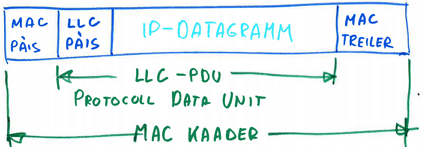 MAC PÄIS
LLC PÄIS
IP-DATAGRAMM
MAC TREILER
LLC-PDU
PROTOCOLL DATA UNIT
MAC KAADER